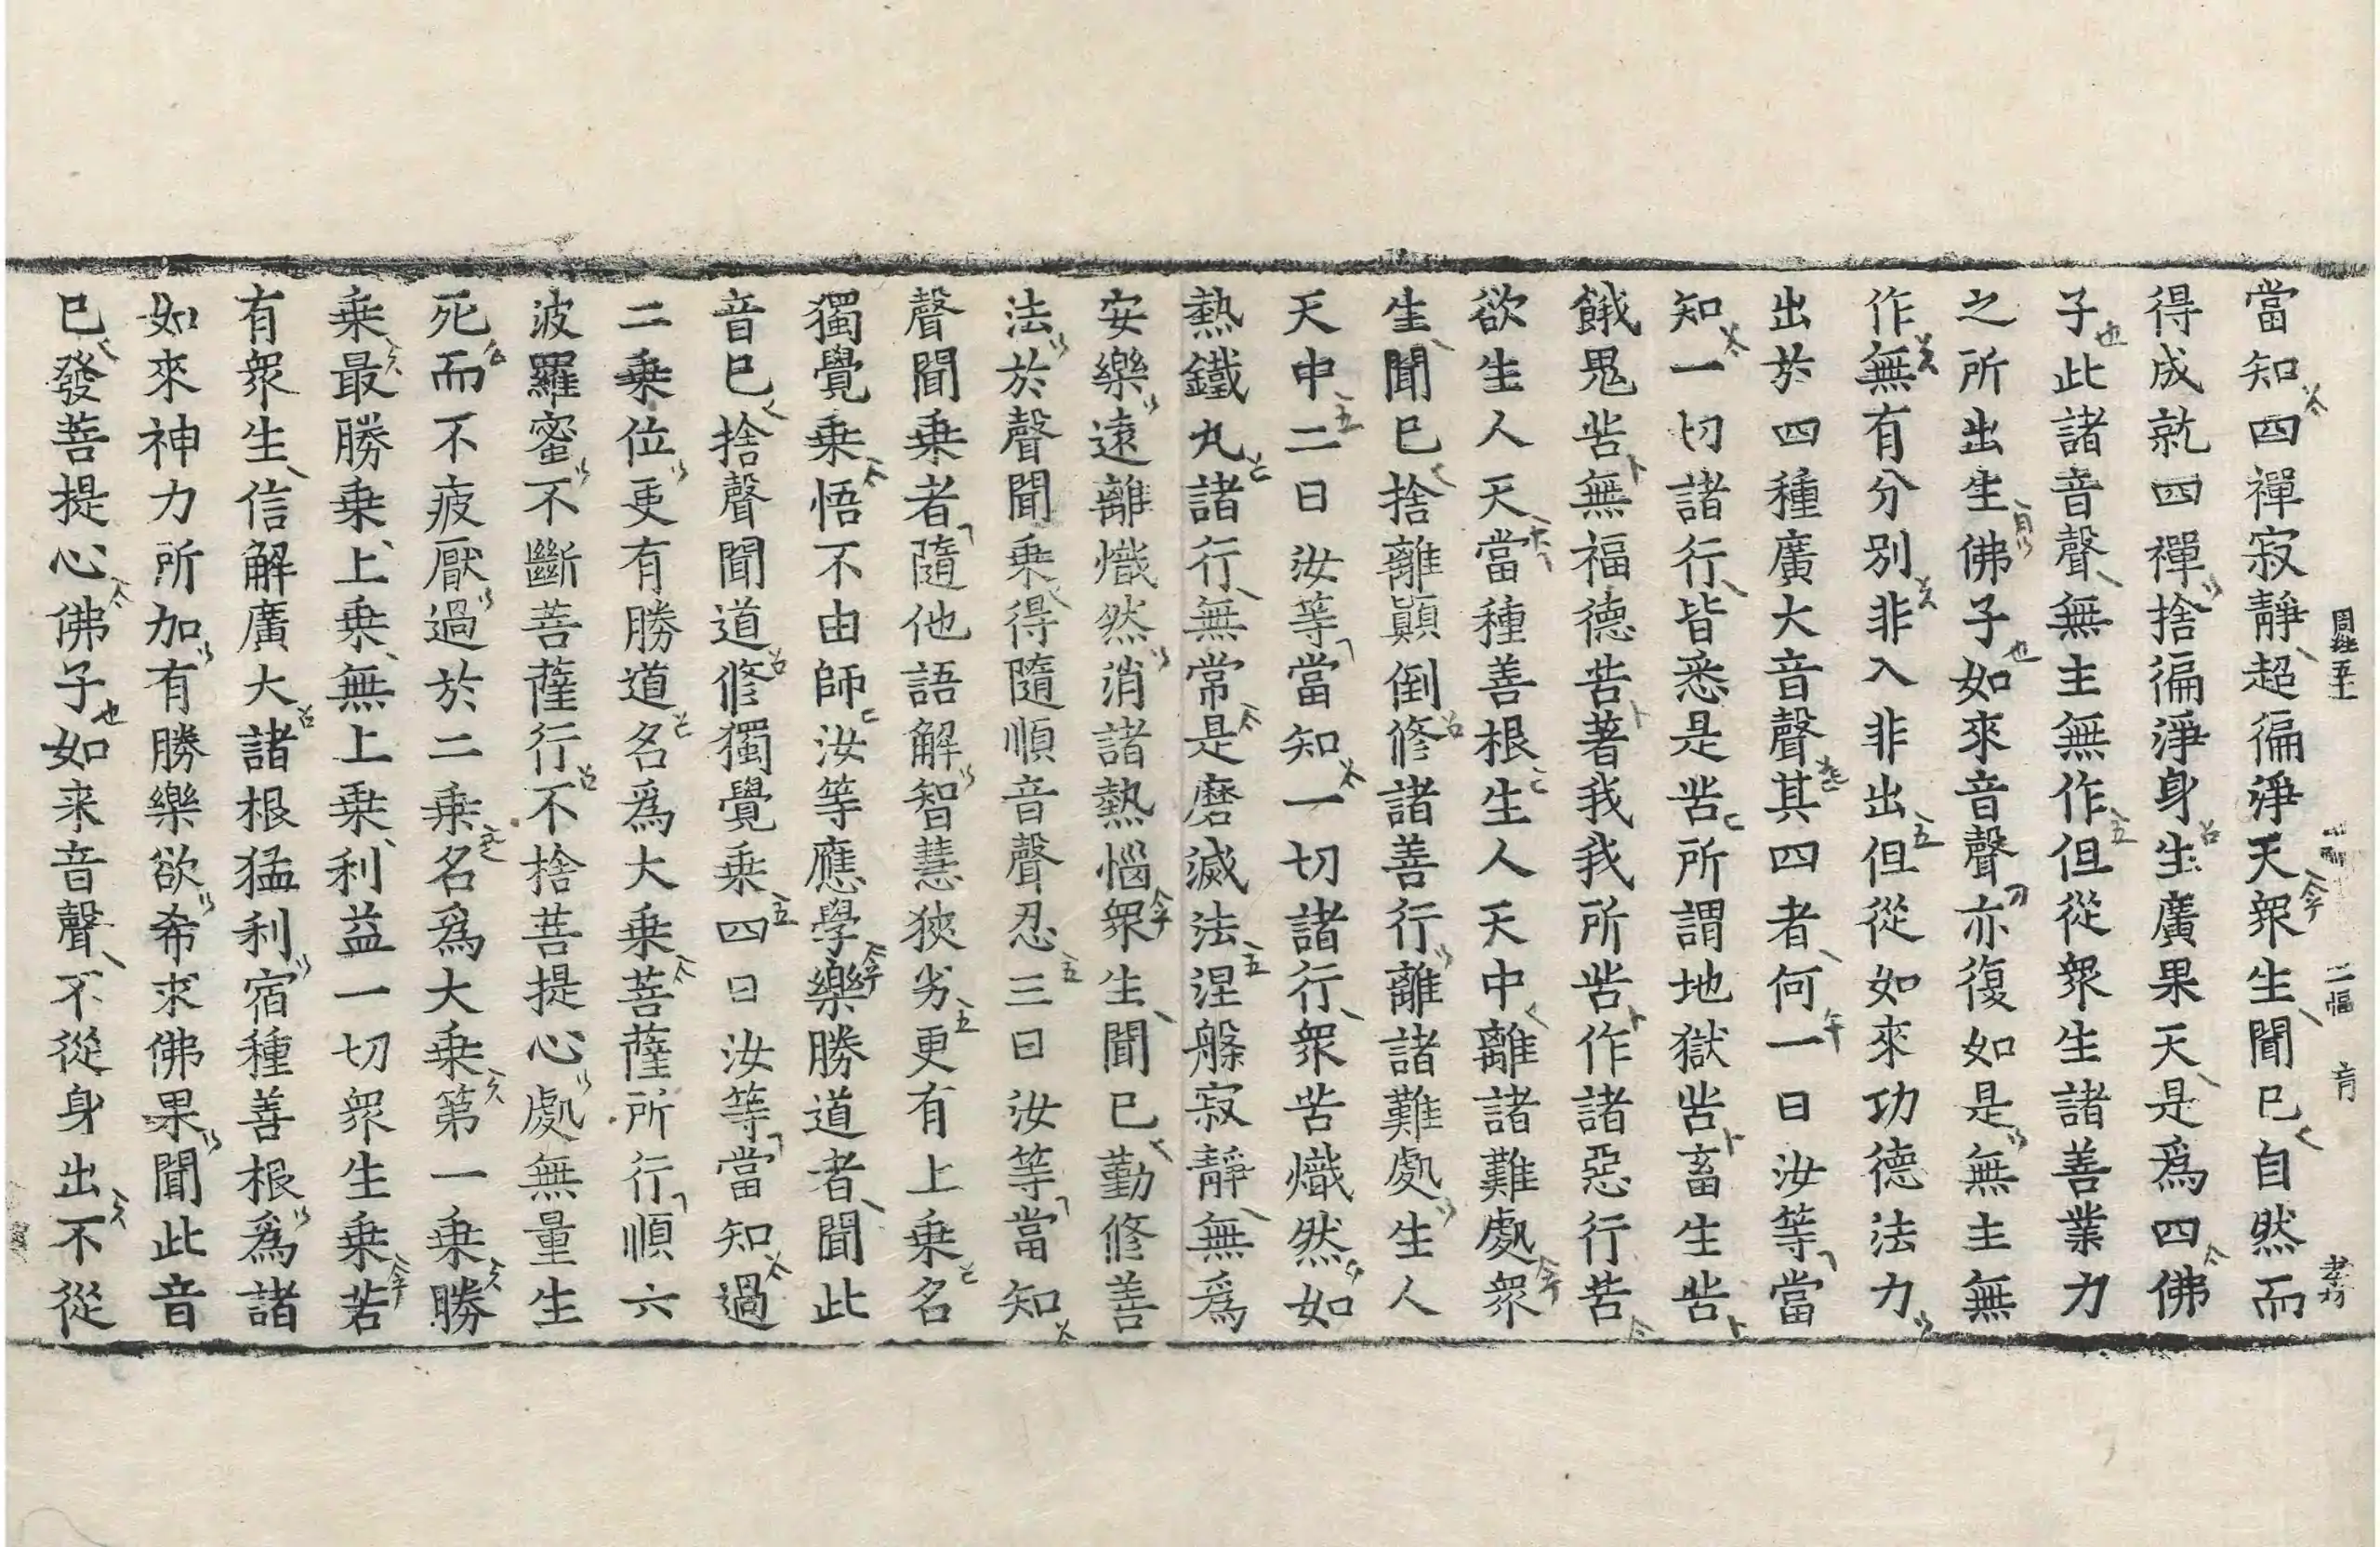 當知四禪寂靜超徧淨天衆生聞已自然而
得成就四禪捨徧淨身生廣果天是爲四佛
子此諸音聲無主無作但從衆生諸善業力
之所出生佛子如來音聲亦復如是無主無
作無有分別非入非出但從如來功德法力
出於四種廣大音聲其四者何一曰汝等當
知一切諸行皆悉是苦所謂地獄苦畜生苦
餓鬼苦無福德苦著我我所苦作諸惡行苦
欲生人天當種善根生人天中離諸難處衆
生聞已捨離顚倒修諸善行離諸難處生人
天中二曰汝等當知一切諸行衆苦熾然如
熱鐵丸諸行無常是磨滅法涅槃寂靜無爲
安樂遠離熾然消諸熱惱衆生聞已勤修善
法於聲聞乘得隨順音聲忍三曰汝等當知
聲聞乘者隨他語解智慧狹劣更有上乘名
獨覺乘悟不由師汝等應學樂勝道者聞此
音已捨聲聞道修獨覺乘四曰汝等當知過
二乘位更有勝道名爲大乘菩薩所行順六
波羅蜜不斷菩薩行不捨菩提心處無量生
死而不疲厭過於二乘名爲大乘第一乘勝
乘最勝乘上乘無上乘利益一切衆生乘若
有衆生信解廣大諸根猛利宿種善根爲諸
如來神力所加有勝樂欲希求佛果聞此音
已發菩提心佛子如来音聲不從身出不從